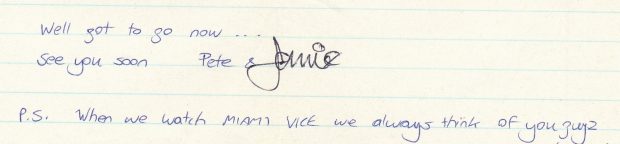 Well got to go now ...
See you soon Pete & Jamie
P.S. When we watch MIAMI VICE we always think of you guyz